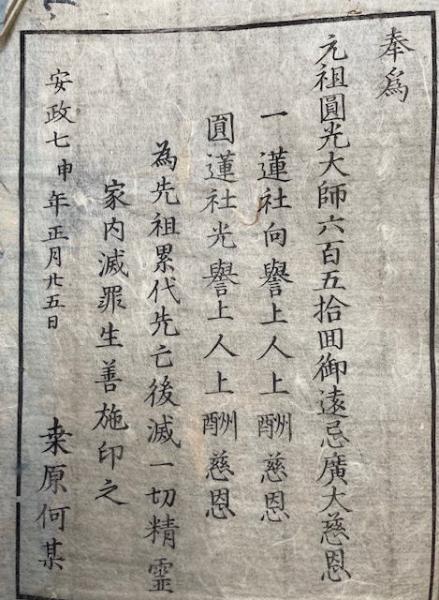 奉為
元祖圓光大師六百五拾回御遠忌廣大慈恩
一蓮社向譽上人上酬慈恩
圓蓮社光譽上人上酬慈恩
為先祖累代先亡後滅一切精霊
家内滅罪生善施印之
安政七申年正月廾五日
桒原何某